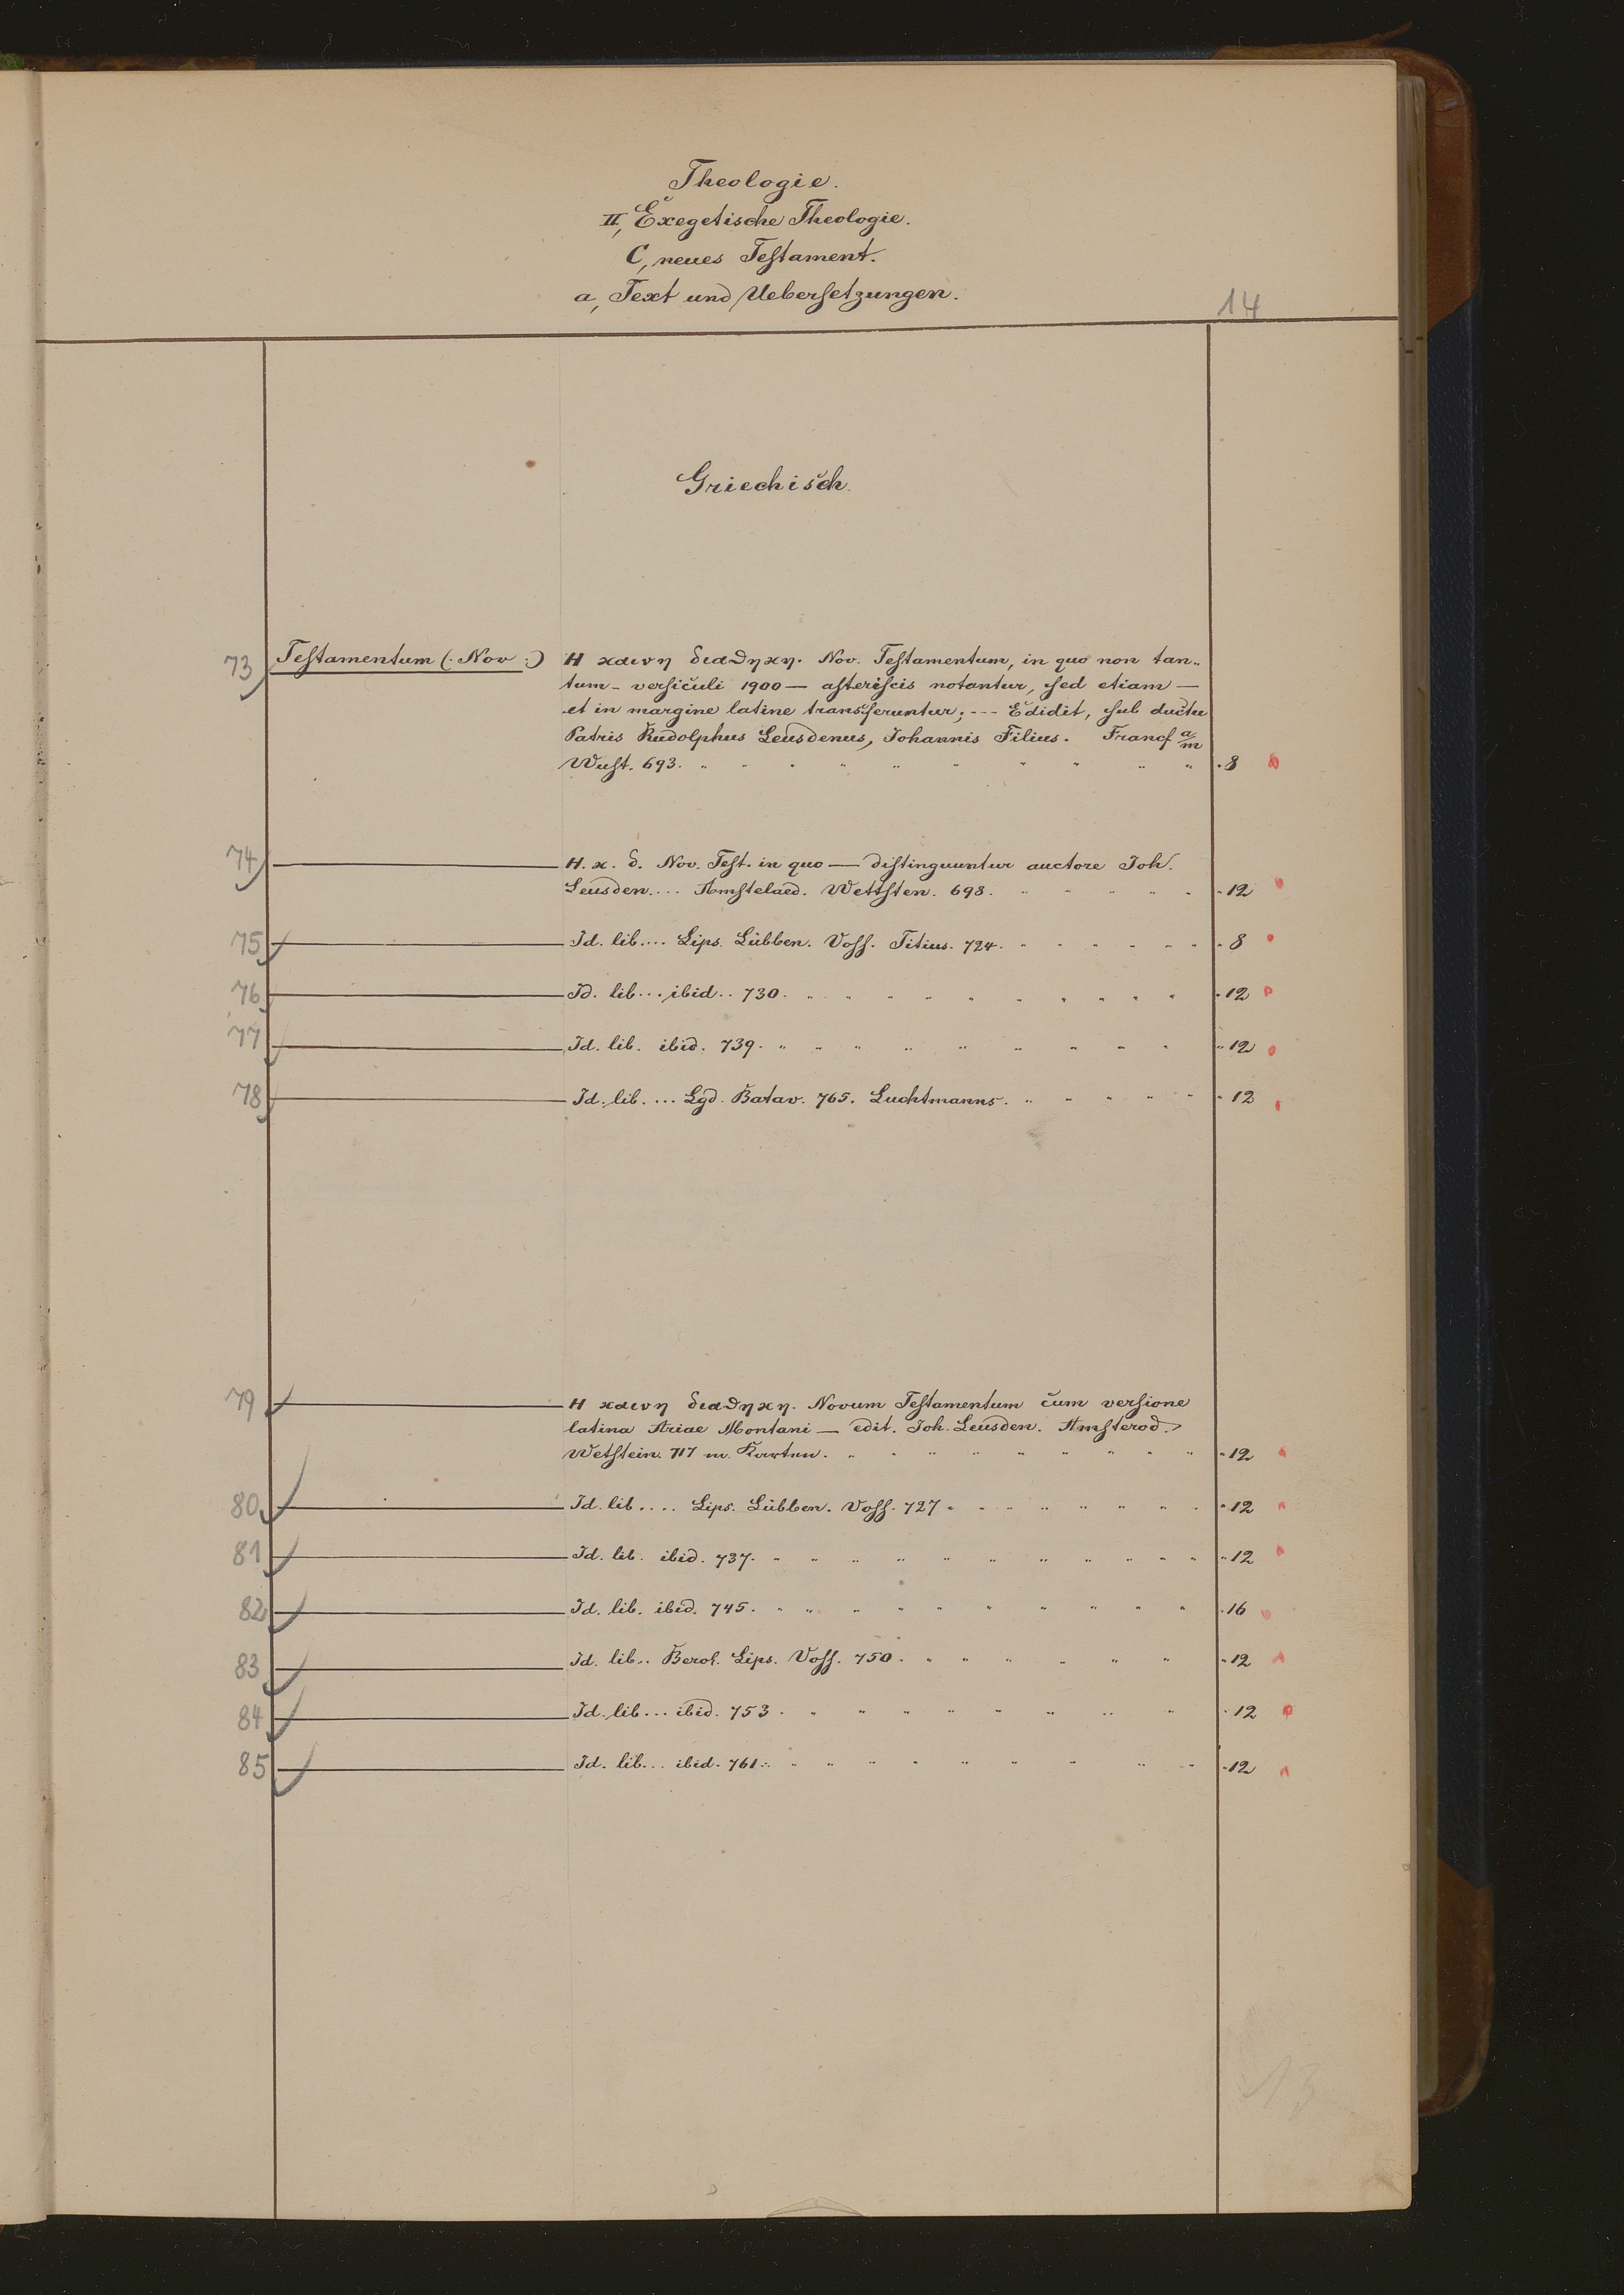 Theologie.
II, Exegetische Theologie.
C, neues Testament.
a, Text und Uebersetzungen.
14
Griechisch.
73 Testamentum (: Nov :) Η καινη διαθηκη. Nov. Testamentum, in quo non tan-
tum - versiculi 1900 — asteriscis notantur, sed etiam —
et in margine latine transferuntur; --- Edidit, sub ductu
Patris Rudolphus Leusdenus, Johannis Filius. Francf a/m
Wust. 693. 8
74 H. κ. δ. Nov. Test. in quo — distinguuntur auctore Joh.
Leusden.... Amstelaed. Wettsten. 698. 12
75 Id. lib.... Lips. Lübben. Voss. Titius. 724. 8
76 Id. lib... ibid.. 730. 12
77 Id. lib. ibid. 739. 12
78 Id. lib. ... Lgd. Batav. 765. Luchtmanns. 12
79 Η καινη διαθηκη. Novum Testamentum cum versione
latina Ariae Montani — edit. Joh. Leusden. Amsterod.
Wetstein. 717 m. Karten. 12
80 Id. lib.... Lips. Lübben. Voss. 727 12
81 Id. lib. ibid. 737. 12
82 Id. lib. ibid. 745. 16
83 Id. lib.. Berol. Lips. Voss. 750. 12
84 Id. lib... ibid. 753. 12
85 Id. lib... ibid. 761. 12
13